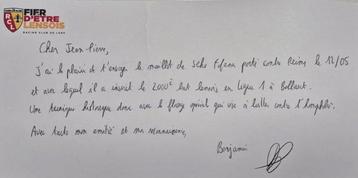 FIER
D'ÊTRE
LENSOIS
RACING CLUB DE LENS
RCL
Cher Jean-Pierre,
J'ai le plaisir de t'envoyer le maillot de Seko Fofana porté contre Reims le 12/05
et avec lequel il a inscrit le 2000è but lensois en Ligue 1 à Bollaert.
Une tunique historique donc avec le flocage spécial qui vise à lutter contre l'homophobie.
Avec toute mon amitié et ma reconnaissance,
Benjamin